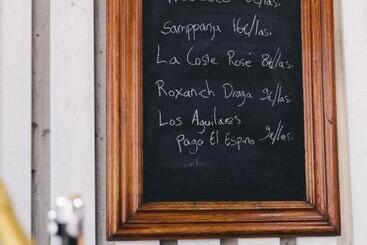 Samppanja 16€/lasi
La Coste Rosé 8€/lasi
Roxanich Draga 9€/lasi
Los Aguilares
Pago El Espino 9€/lasi